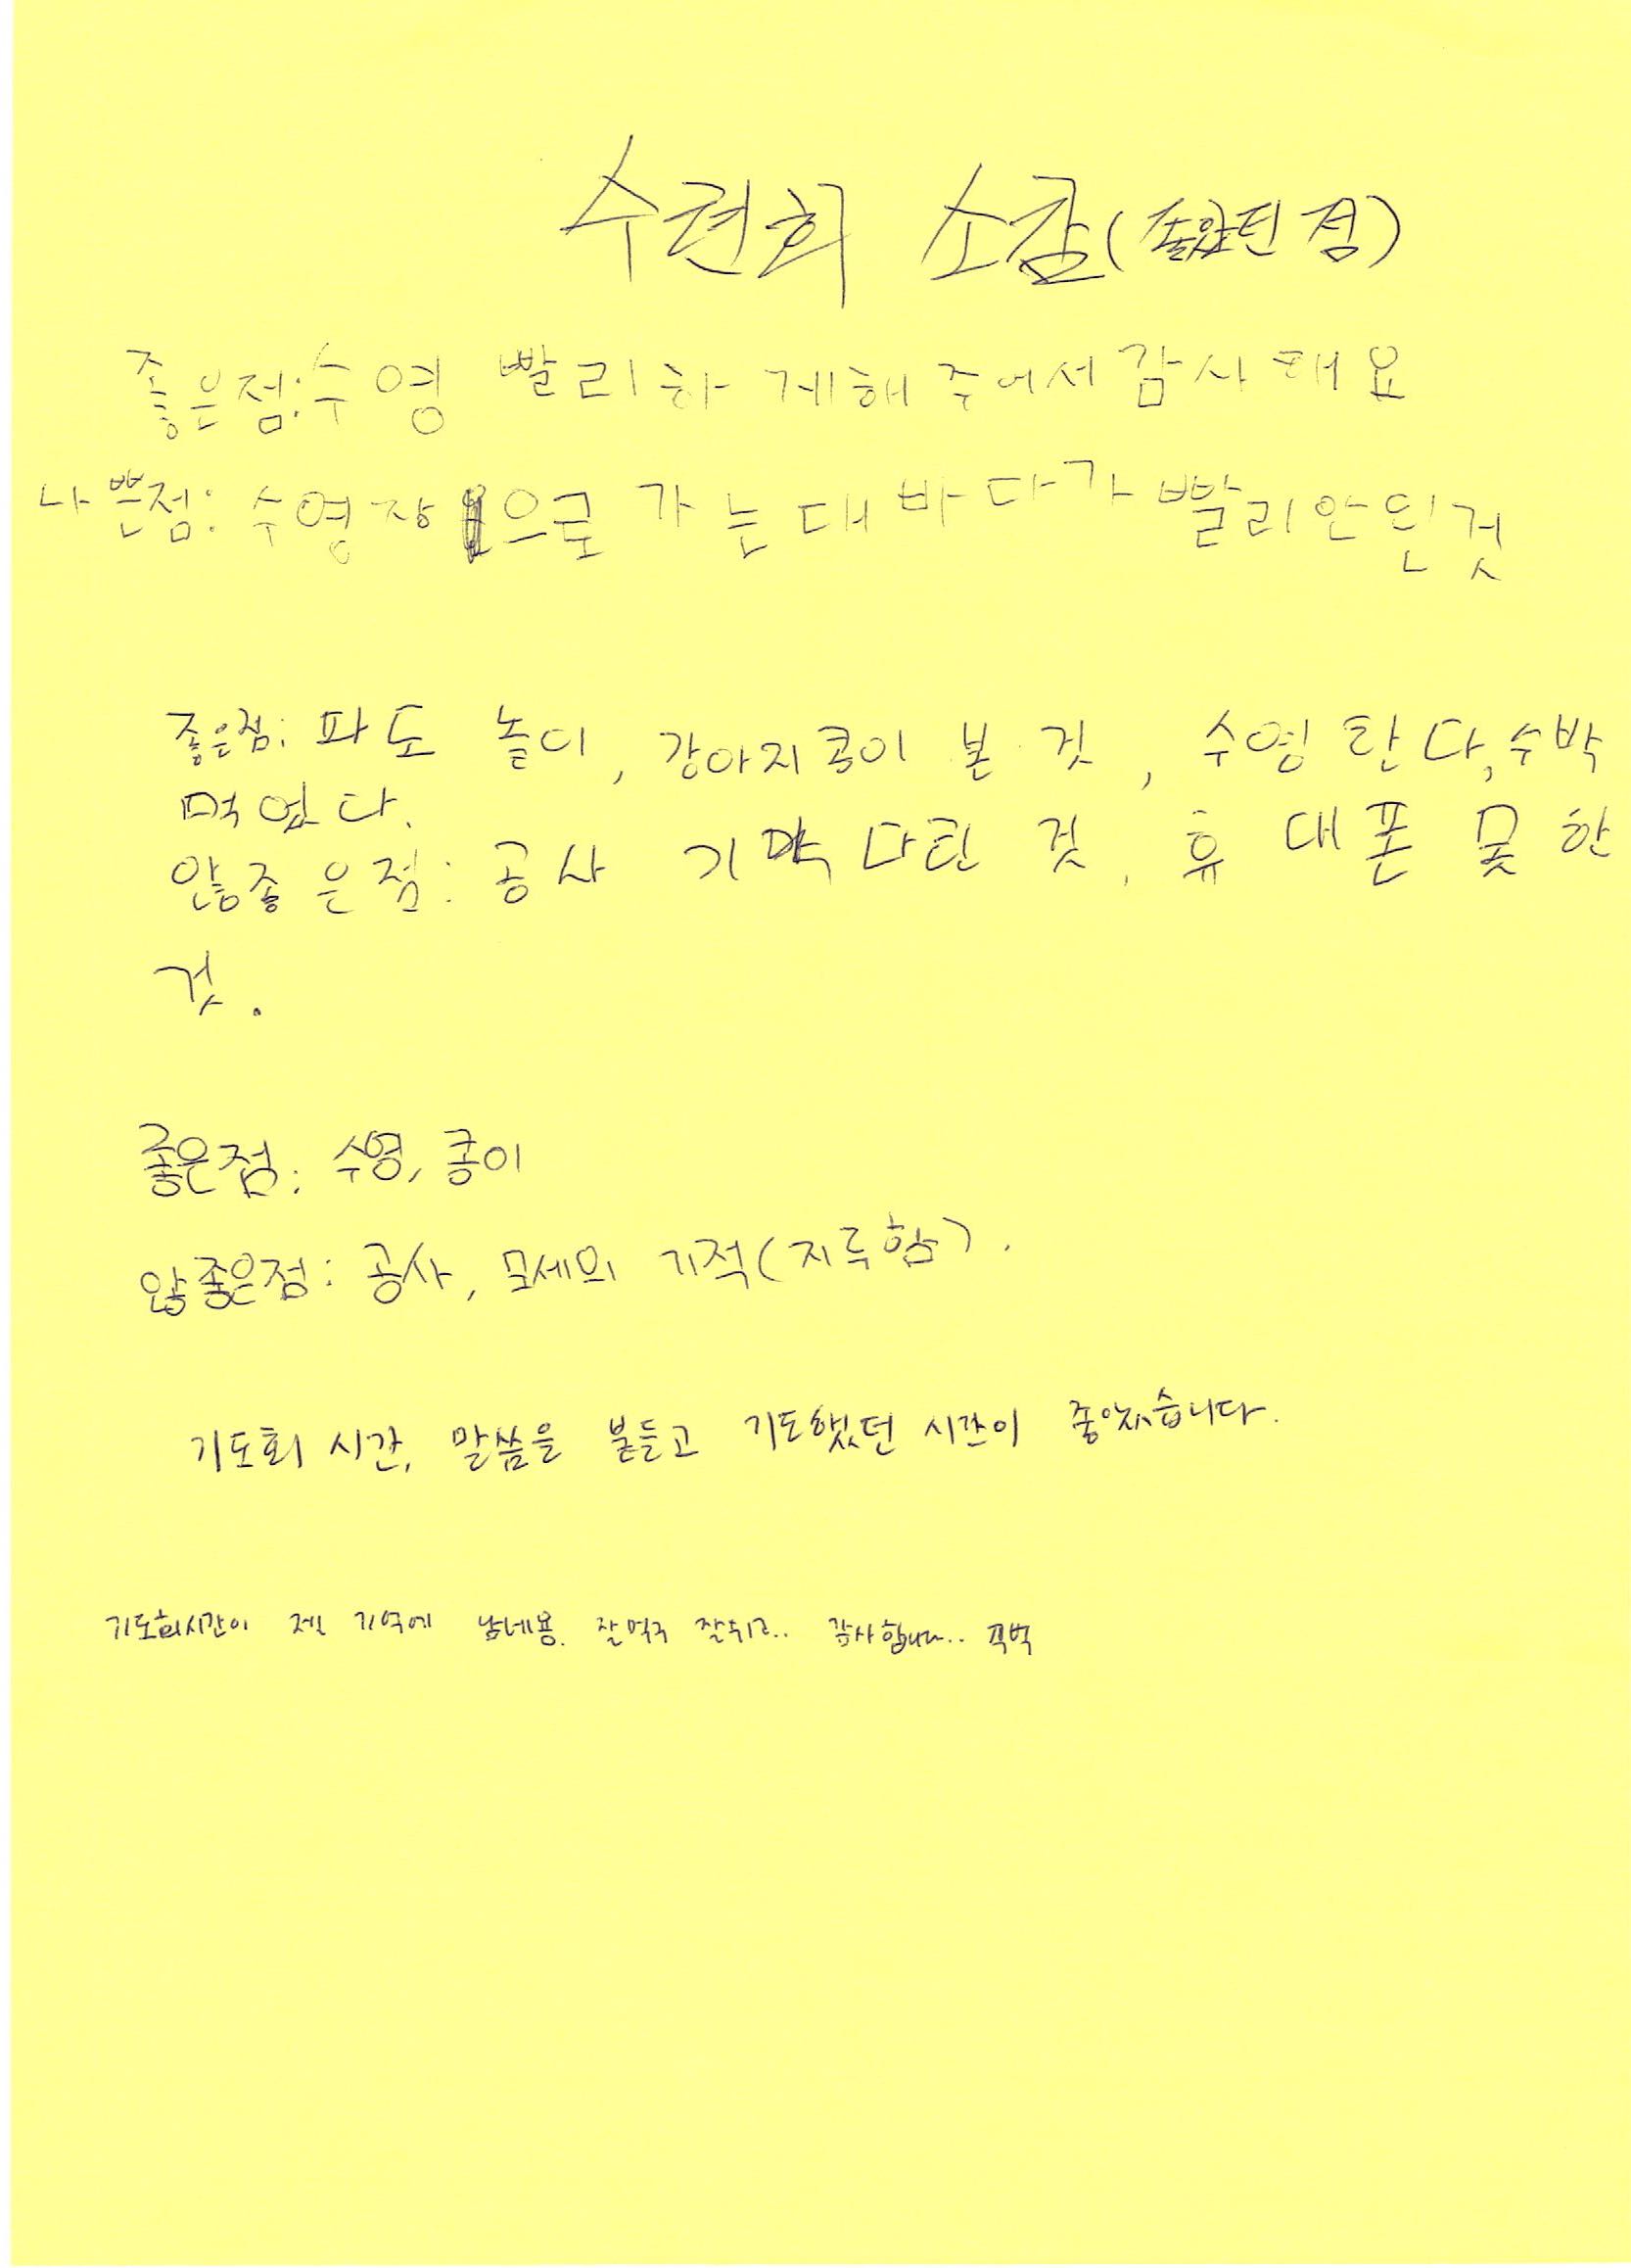 수련회 소감(좋았던 점)
좋은점:수영 빨리하게해주어서감사해요
나쁜점: 수영장으로 가는대 바다가 빨리안된것
좋은점: 파도 놀이, 강아지콩이 본 것, 수영 한다,수박
먹었다.
않좋은점: 공사 기다린 것, 휴대폰 못한
것.
좋은점: 수영, 콩이
않좋은점: 공사, 모세의 기적(지루함).
기도회 시간, 말씀을 붙들고 기도했던 시간이 좋았습니다.
기도회시간이 젤 기억에 남네용. 잘먹구 잘쉬고.. 감사합니다.. 꾸벅